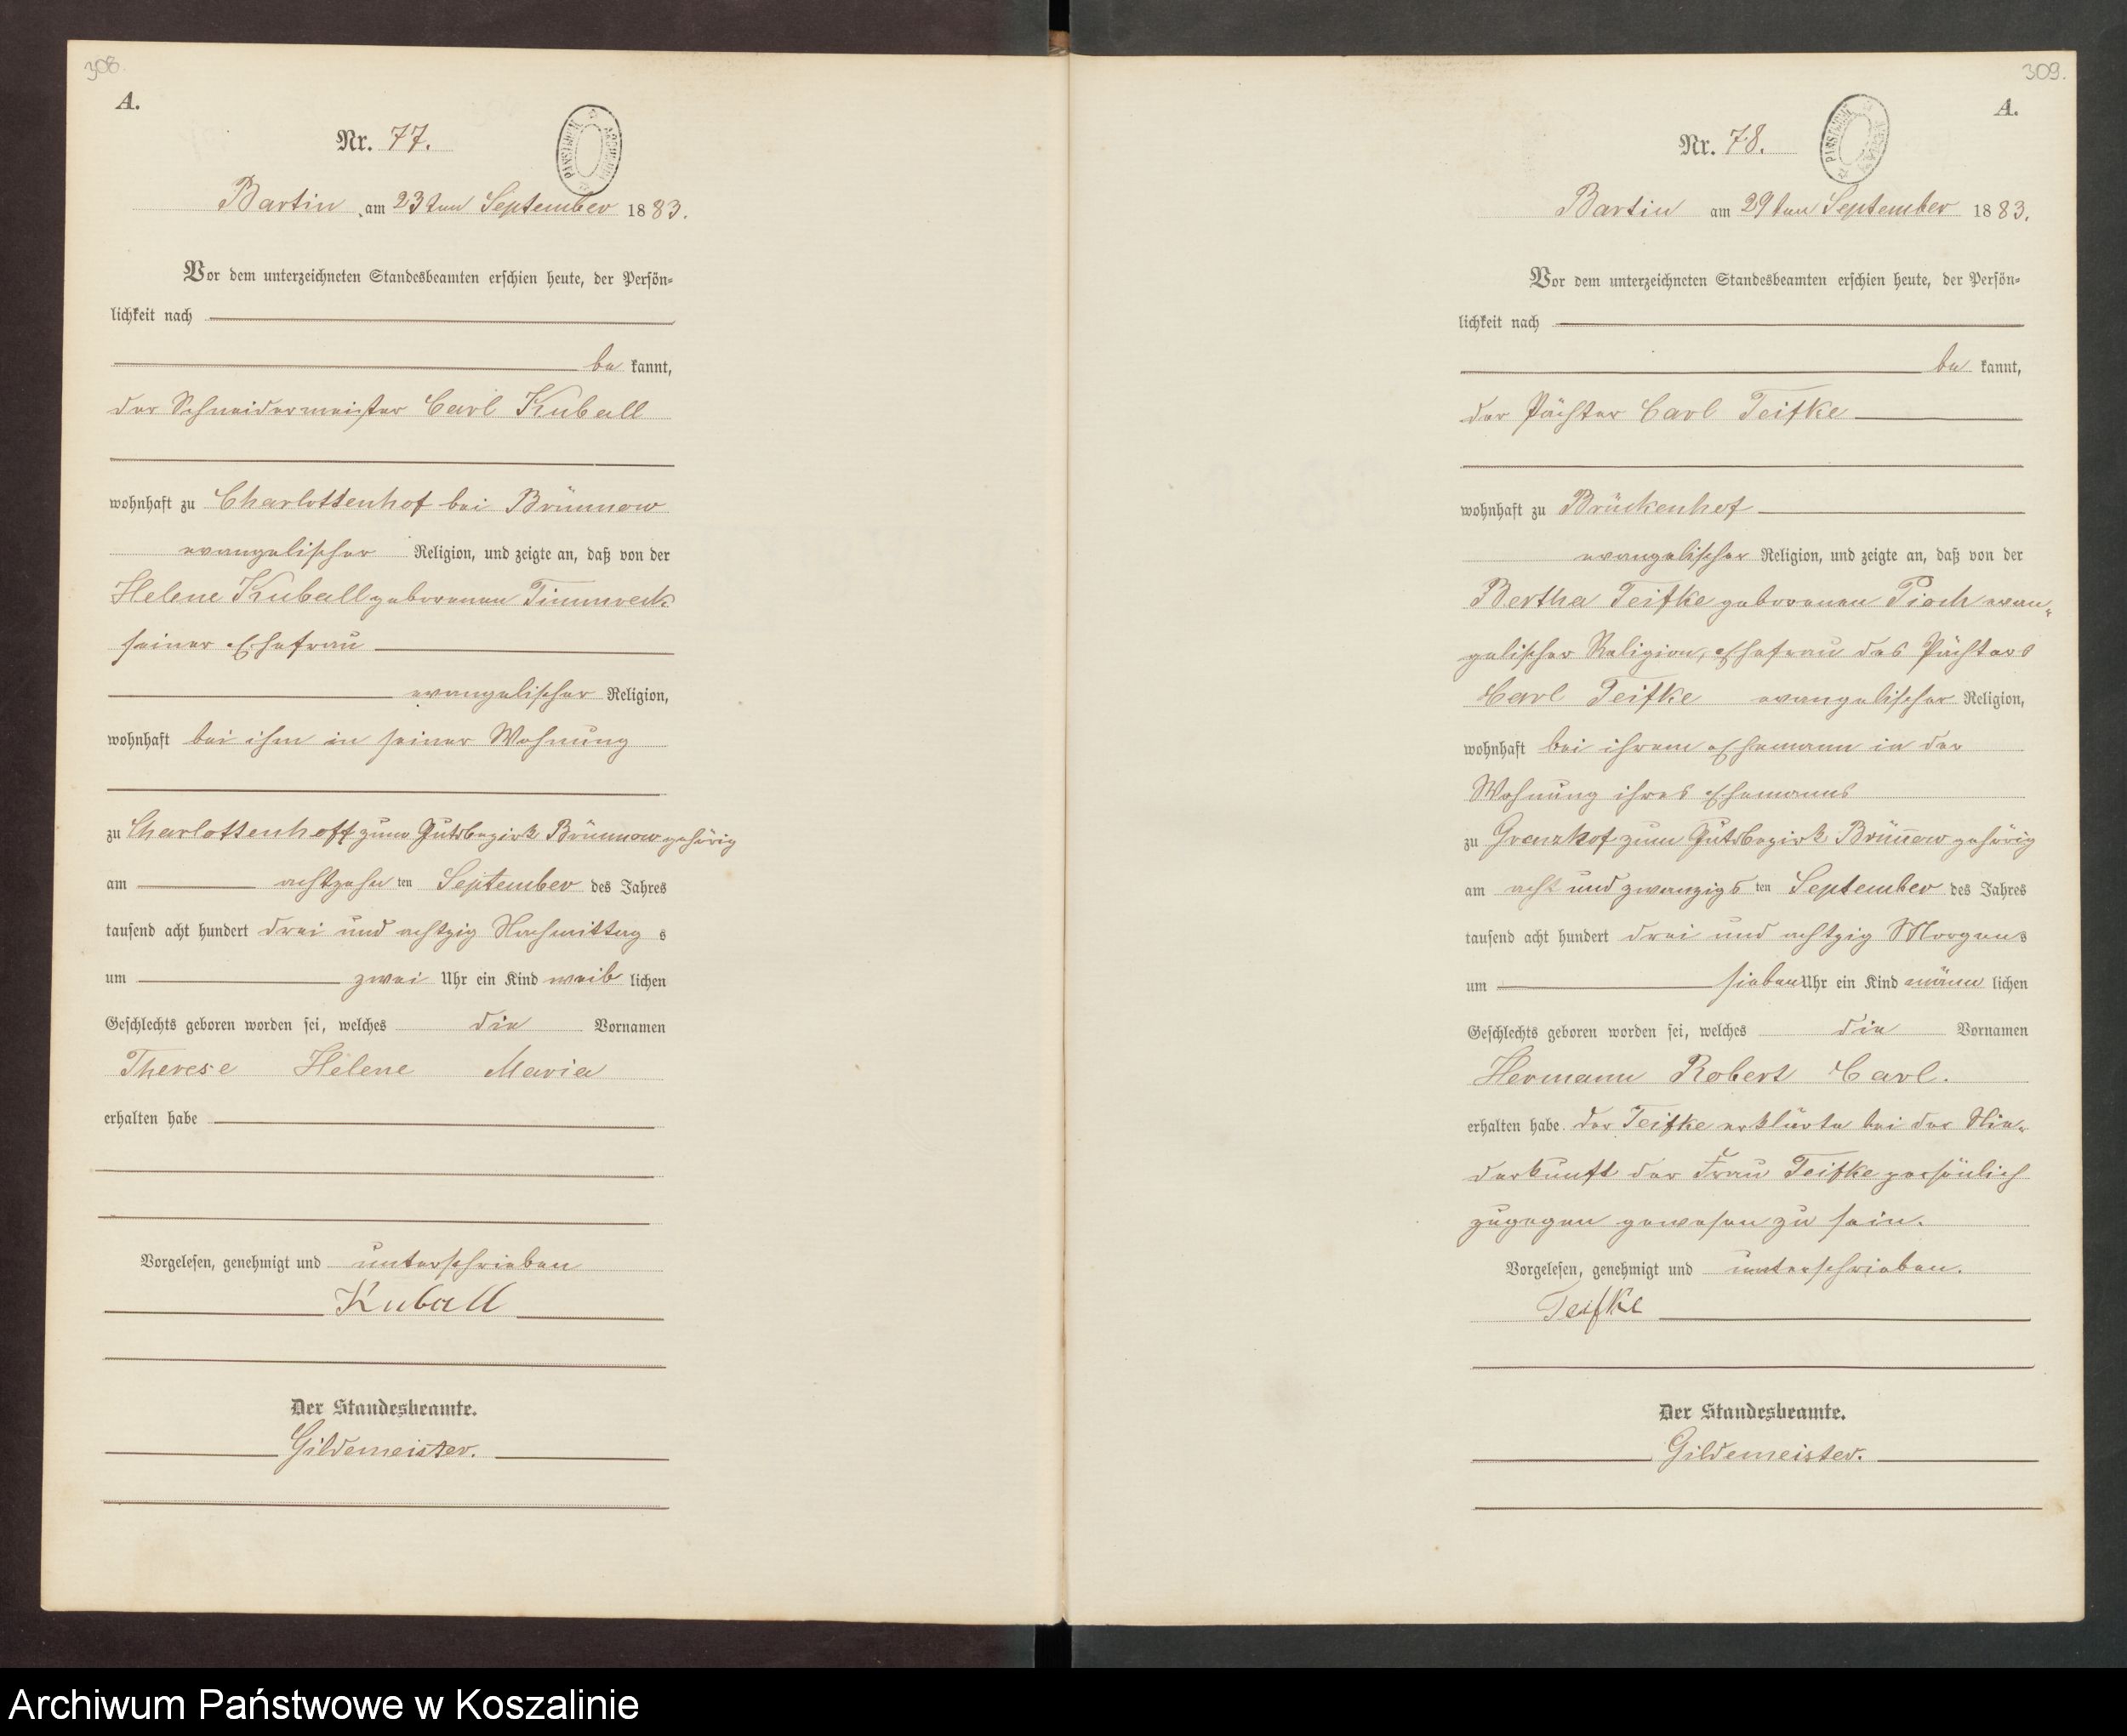 308.
A.
Nr. 77.
Bartin am 23ten September 1883.
Vor dem unterzeichneten Standesbeamten erschien heute, der Persön-
lichkeit nach
be kannt,
der Schneidermeister Carl Kuball
wohnhaft zu Charlottenhof bei Brünnow
evangelischer Religion, und zeigte an, daß von der
Helene Kuball geborenen Timmreck
seiner Ehefrau
evangelischer Religion,
wohnhaft bei ihm in seiner Wohnung
zu Charlottenhoff zum Gutsbezirk Brünnow gehörig
am achtzehn ten September des Jahres
tausend acht hundert drei und achtzig Nachmittag s
um zwei Uhr ein Kind weib lichen
Geschlechts geboren worden sei, welches die Vornamen
Therese Helene Maria
erhalten habe
Vorgelesen, genehmigt und unterschrieben
Kuball
Der Standesbeamte.
Gildemeister.
309.
A.
Nr. 78.
Bartin am 29ten September 1883.
Vor dem unterzeichneten Standesbeamten erschien heute, der Persön-
lichkeit nach
be kannt,
der Pächter Carl Teifke
wohnhaft zu Brückenhof
evangelischer Religion, und zeigte an, daß von der
Bertha Teifke geborenen Pioch evan-
gelischer Religion, Ehefrau des Pächters
Carl Teifke evangelischer Religion,
wohnhaft bei ihrem Ehemann in der
Wohnung ihres Ehemanns
zu Grenzhof zum Gutsbezirk Brünnow gehörig
am acht und zwanzigs ten September des Jahres
tausend acht hundert drei und achtzig Morgens
um sieben Uhr ein Kind männ lichen
Geschlechts geboren worden sei, welches die Vornamen
Hermann Robert Carl.
erhalten habe. Der Teifke erklärte bei der Nie-
derkunft der Frau Teifke persönlich
zugegen gewesen zu sein.
Vorgelesen, genehmigt und unterschrieben.
Teifke
Der Standesbeamte.
Gildemeister.
Archiwum Państwowe w Koszalinie